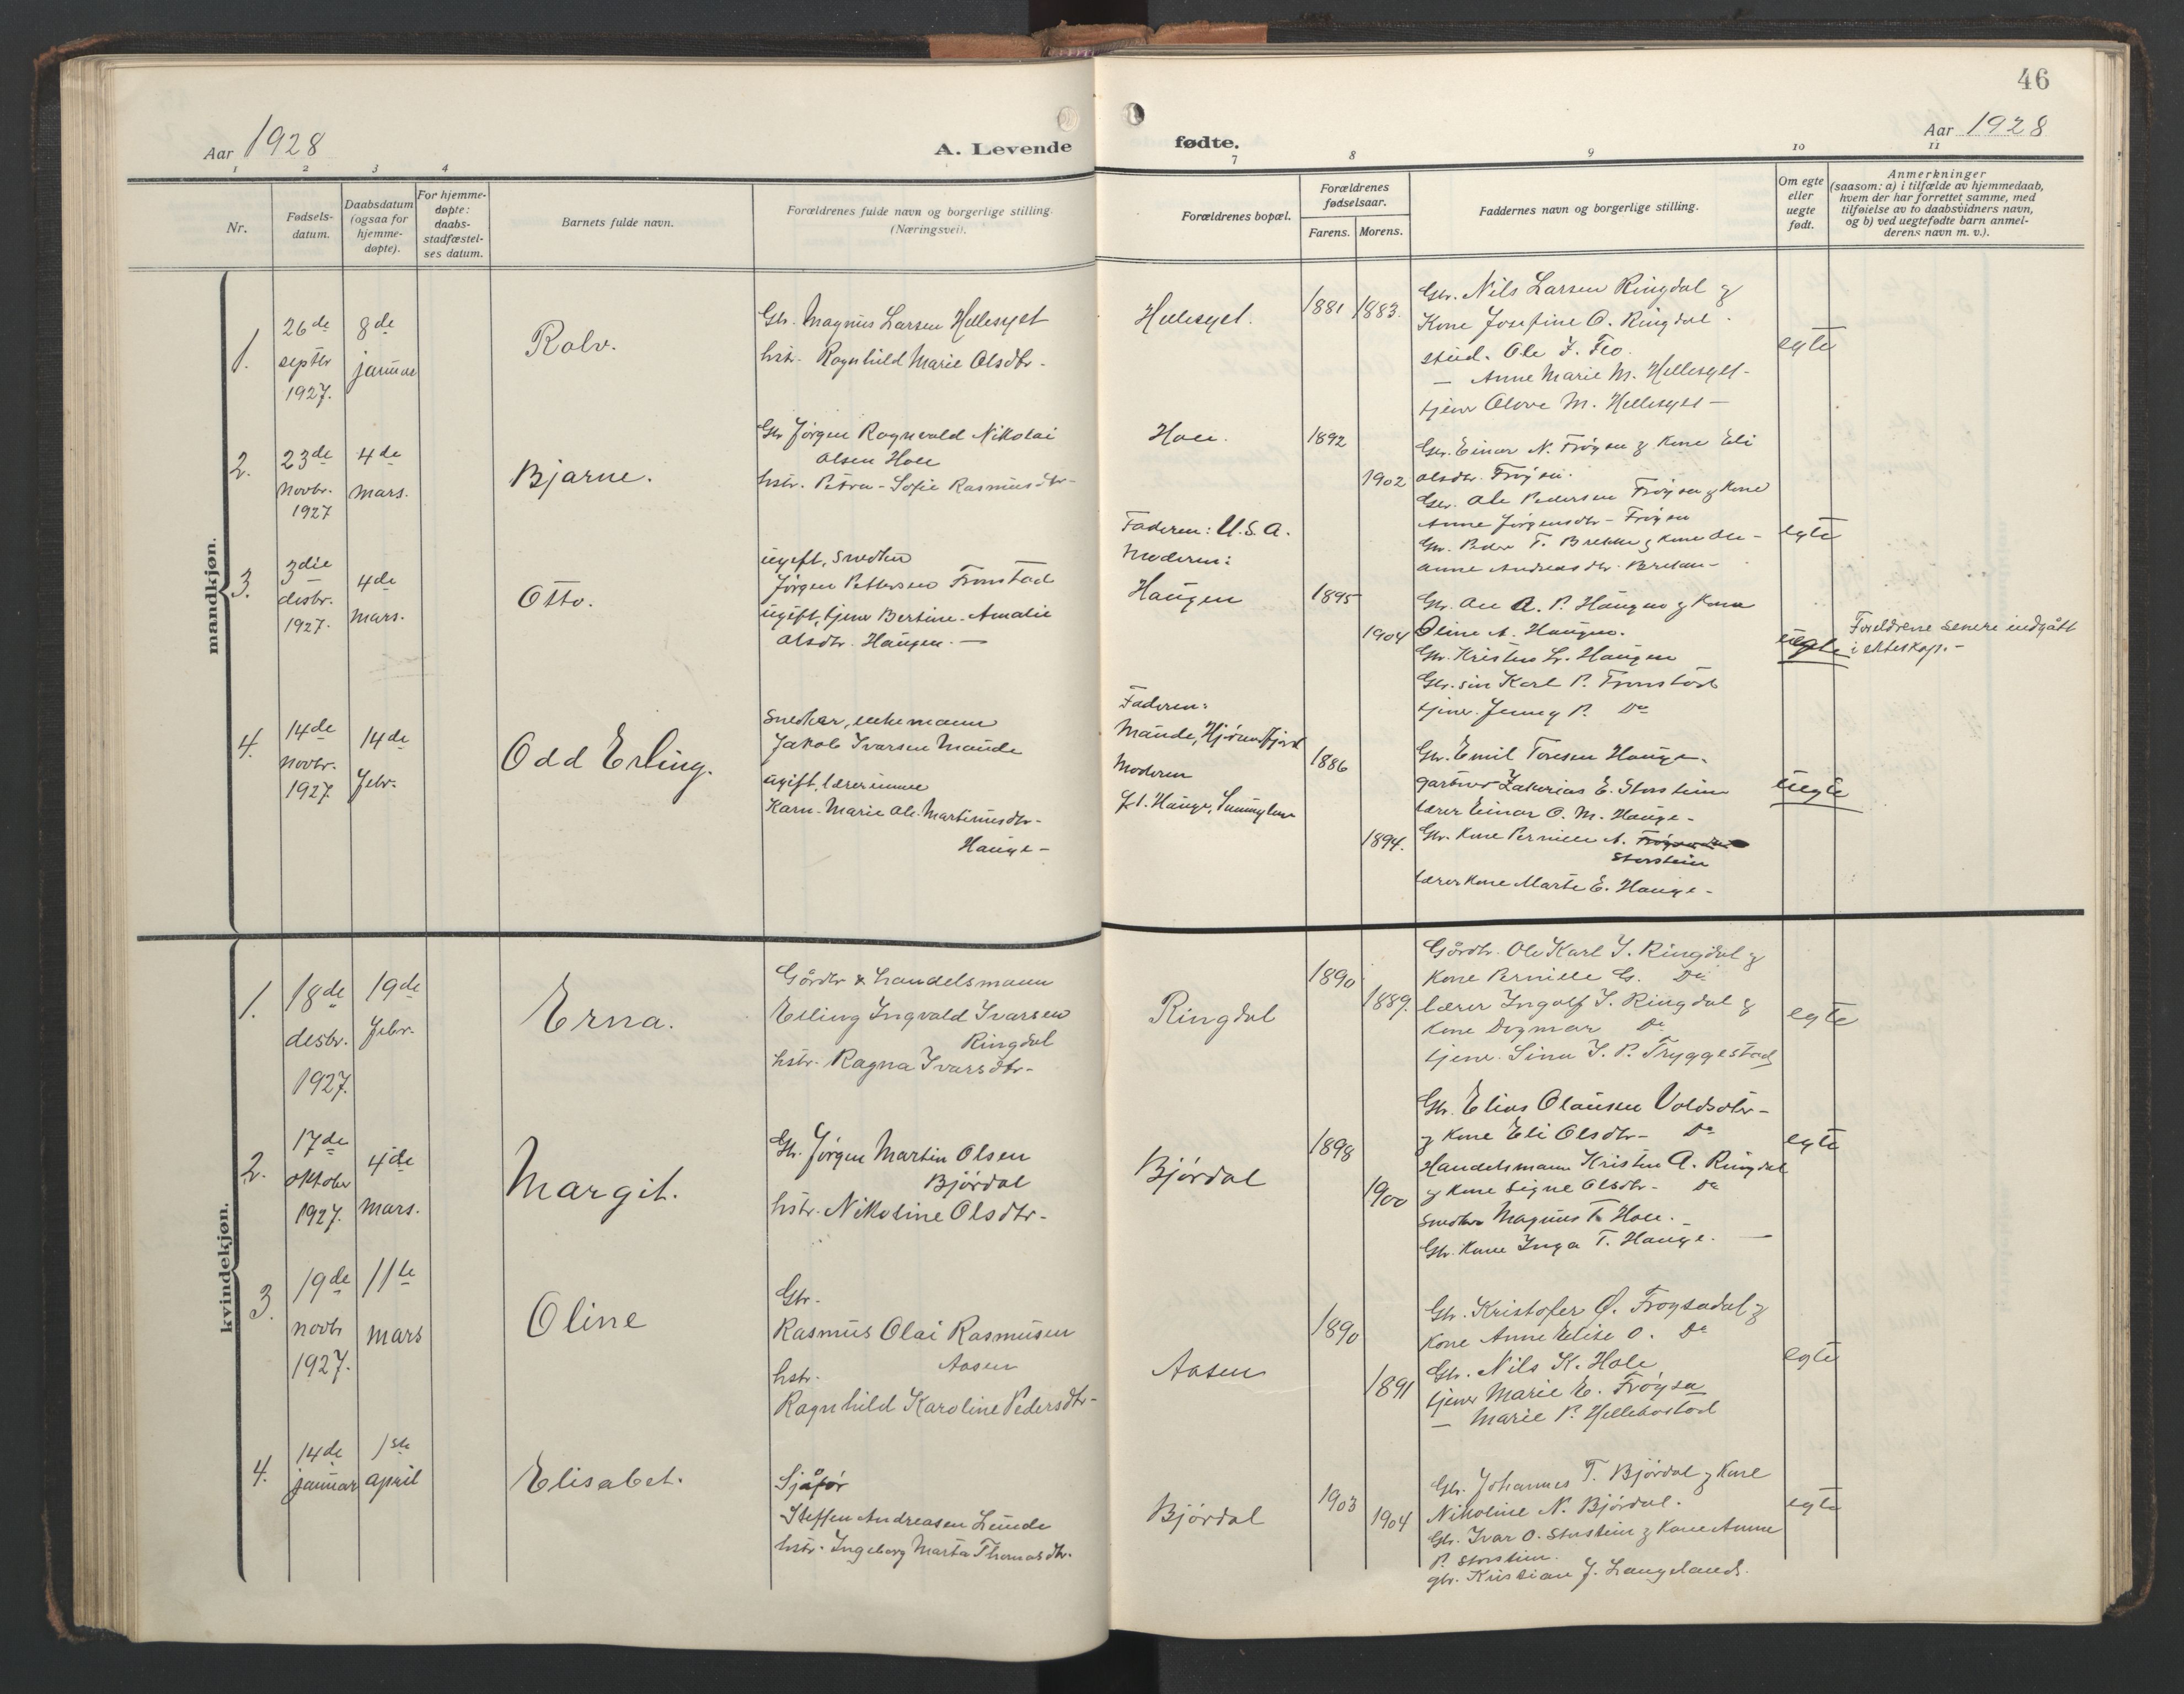 46
Aar 1928
A. Levende
fødte.
Aar 1928
1 2 3 4
7 8 9 10 11
Nr.
Fødsels-
datum.
Daabsdatum
(ogsaa for
hjemme-
døpte).
For hjemme-
døpte:
daabs-
stadfæstel-
ses datum.
Barnets fulde navn.
Forældrenes fulde navn og borgerlige stilling.
(Næringsvei).
Forældrenes bopæl.
Forældrenes
fødselsaar.
Farens. Morens.
Faddernes navn og borgerlige stilling.
Om egte
eller
uegte
født.
Anmerkninger
(saasom: a) i tilfælde av hjemmedaab,
hvem der har forrettet samme, med
tilføielse av to daabsvidners navn,
og b) ved uegtefødte barn anmel-
derens navn m. v.).
mandkjøn.
1.
26de
septbr
1927.
8de
januar
Rolv.
Gbr. Magnus Larsen Hellesylt
hstr. Ragnhild Marie Olsdtr.
Hellesylt.
1881 1883.
Gbr. Nils Larsen Ringdal &
Kone Josefine O. Ringdal.
stud. Ole J. Flo.
— Anne Marie M. Hellesylt-
tjener Olove M. Hellesylt —
egte
2.
23de
novbr.
1927
4de
mars.
Bjarne.
Gbr Jørgen Ragnvald Nikolai
Olsen Hole
hstr. Petra-Sofie Rasmusdtr-
Hole.
1892
1902
Gbr. Einar N. Frøysa & Kone Eli
Olsdtr. Frøysa.
Gbr. Ole Pedersen Frøysa & Kone
Anne Jørgensdtr - Frøysa
Gbr. Peder T. & Kone Ole-
Anne Andreasdtr.
egte
3.
3die
desbr.
1927.
4de
mars.
Otto.
ugift, snedker
Jørgen Pettersen Tronstad
ugift, tjener Bertine-Amalie
Olsdtr. Haugen. —
Faderen: U.S.A.
Moderen:
Haugen
1895
1904
Gbr. Ole A. P. Haugen & Kone
Oline A. Haugen.
Gbr. Kristen L. Haugen
Gbr. søn Karl P. Tronstad
tjener. Jenny P. Do
uegte
Foreldrene senere indgått
i ekteskap. -
4.
14de
novbr.
1927.
14de
febr.
Odd Erling.
Snedker, enkemann
Jakob Ivarsen Maude
ugift, lærerinne
Karn-Marie Ole-Martinusdtr-
Hauge -
Faderen:
Maude, Hjørundfjord
Moderen
Hauge, Sunnylven
1886
1894.
Gbr. Emil Toresen Hauge.
gartner Zakarias E. Storstein
lærer Einar O. M. Hauge-
Gbr. Kone Pernille A.
Storstein
lærer kone Marte E. Hauge-
uegte
kvindekjøn.
1.
18de
desbr.
1927.
19de
febr.
Erna.
Gårdbr & handelsmann
Elling Ingvald Ivarsen
Ringdal
hstr. Ragna Ivarsdtr-
Ringdal
1890
1889.
Gårdbr. Ole Karl I. Ringdal &
Kone Pernille G. Do
lærer Ingolf I. Ringdal &
Kone Dagmar Do
tjener. Sina I. P. Tryggestad
egte
2.
17de
oktober
1927.
4de
mars.
Margit.
Gbr. Jørgen Martin Olsen
Bjørdal
hstr. Nikoline Olsdtr-
Bjørdal
1898
1900
Gbr. Elias Olausen
& Kone Eli Olsdtr- Do
Handelsmann Kristen A. Ringdal
& Kone Signe Olsdtr- Do
snedker Magnus T. Hole. -
Gbr. Kone Inga T. Hauge. —
egte
3.
19de
novbr
1927.
11te
mars
Oline
Gbr.
Rasmus Olai Rasmusen
Aasen
hstr.
Ragnhild Karoline Pedersdtr-
Aasen
1890
1891
Gbr. Kristofer O. Frøysadal &
Kone Anne Elise O. Do
Gbr. Nils K. Hole
tjener Marie E. Frøysa
— Marie P. Hellebostad
egte
4.
14de
januar
1ste
april
Elisabet.
Sjåfør
Steffen Andreasen Lunde
hstr. Ingeborg Marta Thomasdtr.
Bjørdal
1903
1904
Gbr. Johannes T. Bjørdal & Kone
Nikoline N. Bjørdal.
Gbr. Ivar O. Storstein & Kone Anne
P. Storstein.
gbr. Kristian J. Langeland.
egte